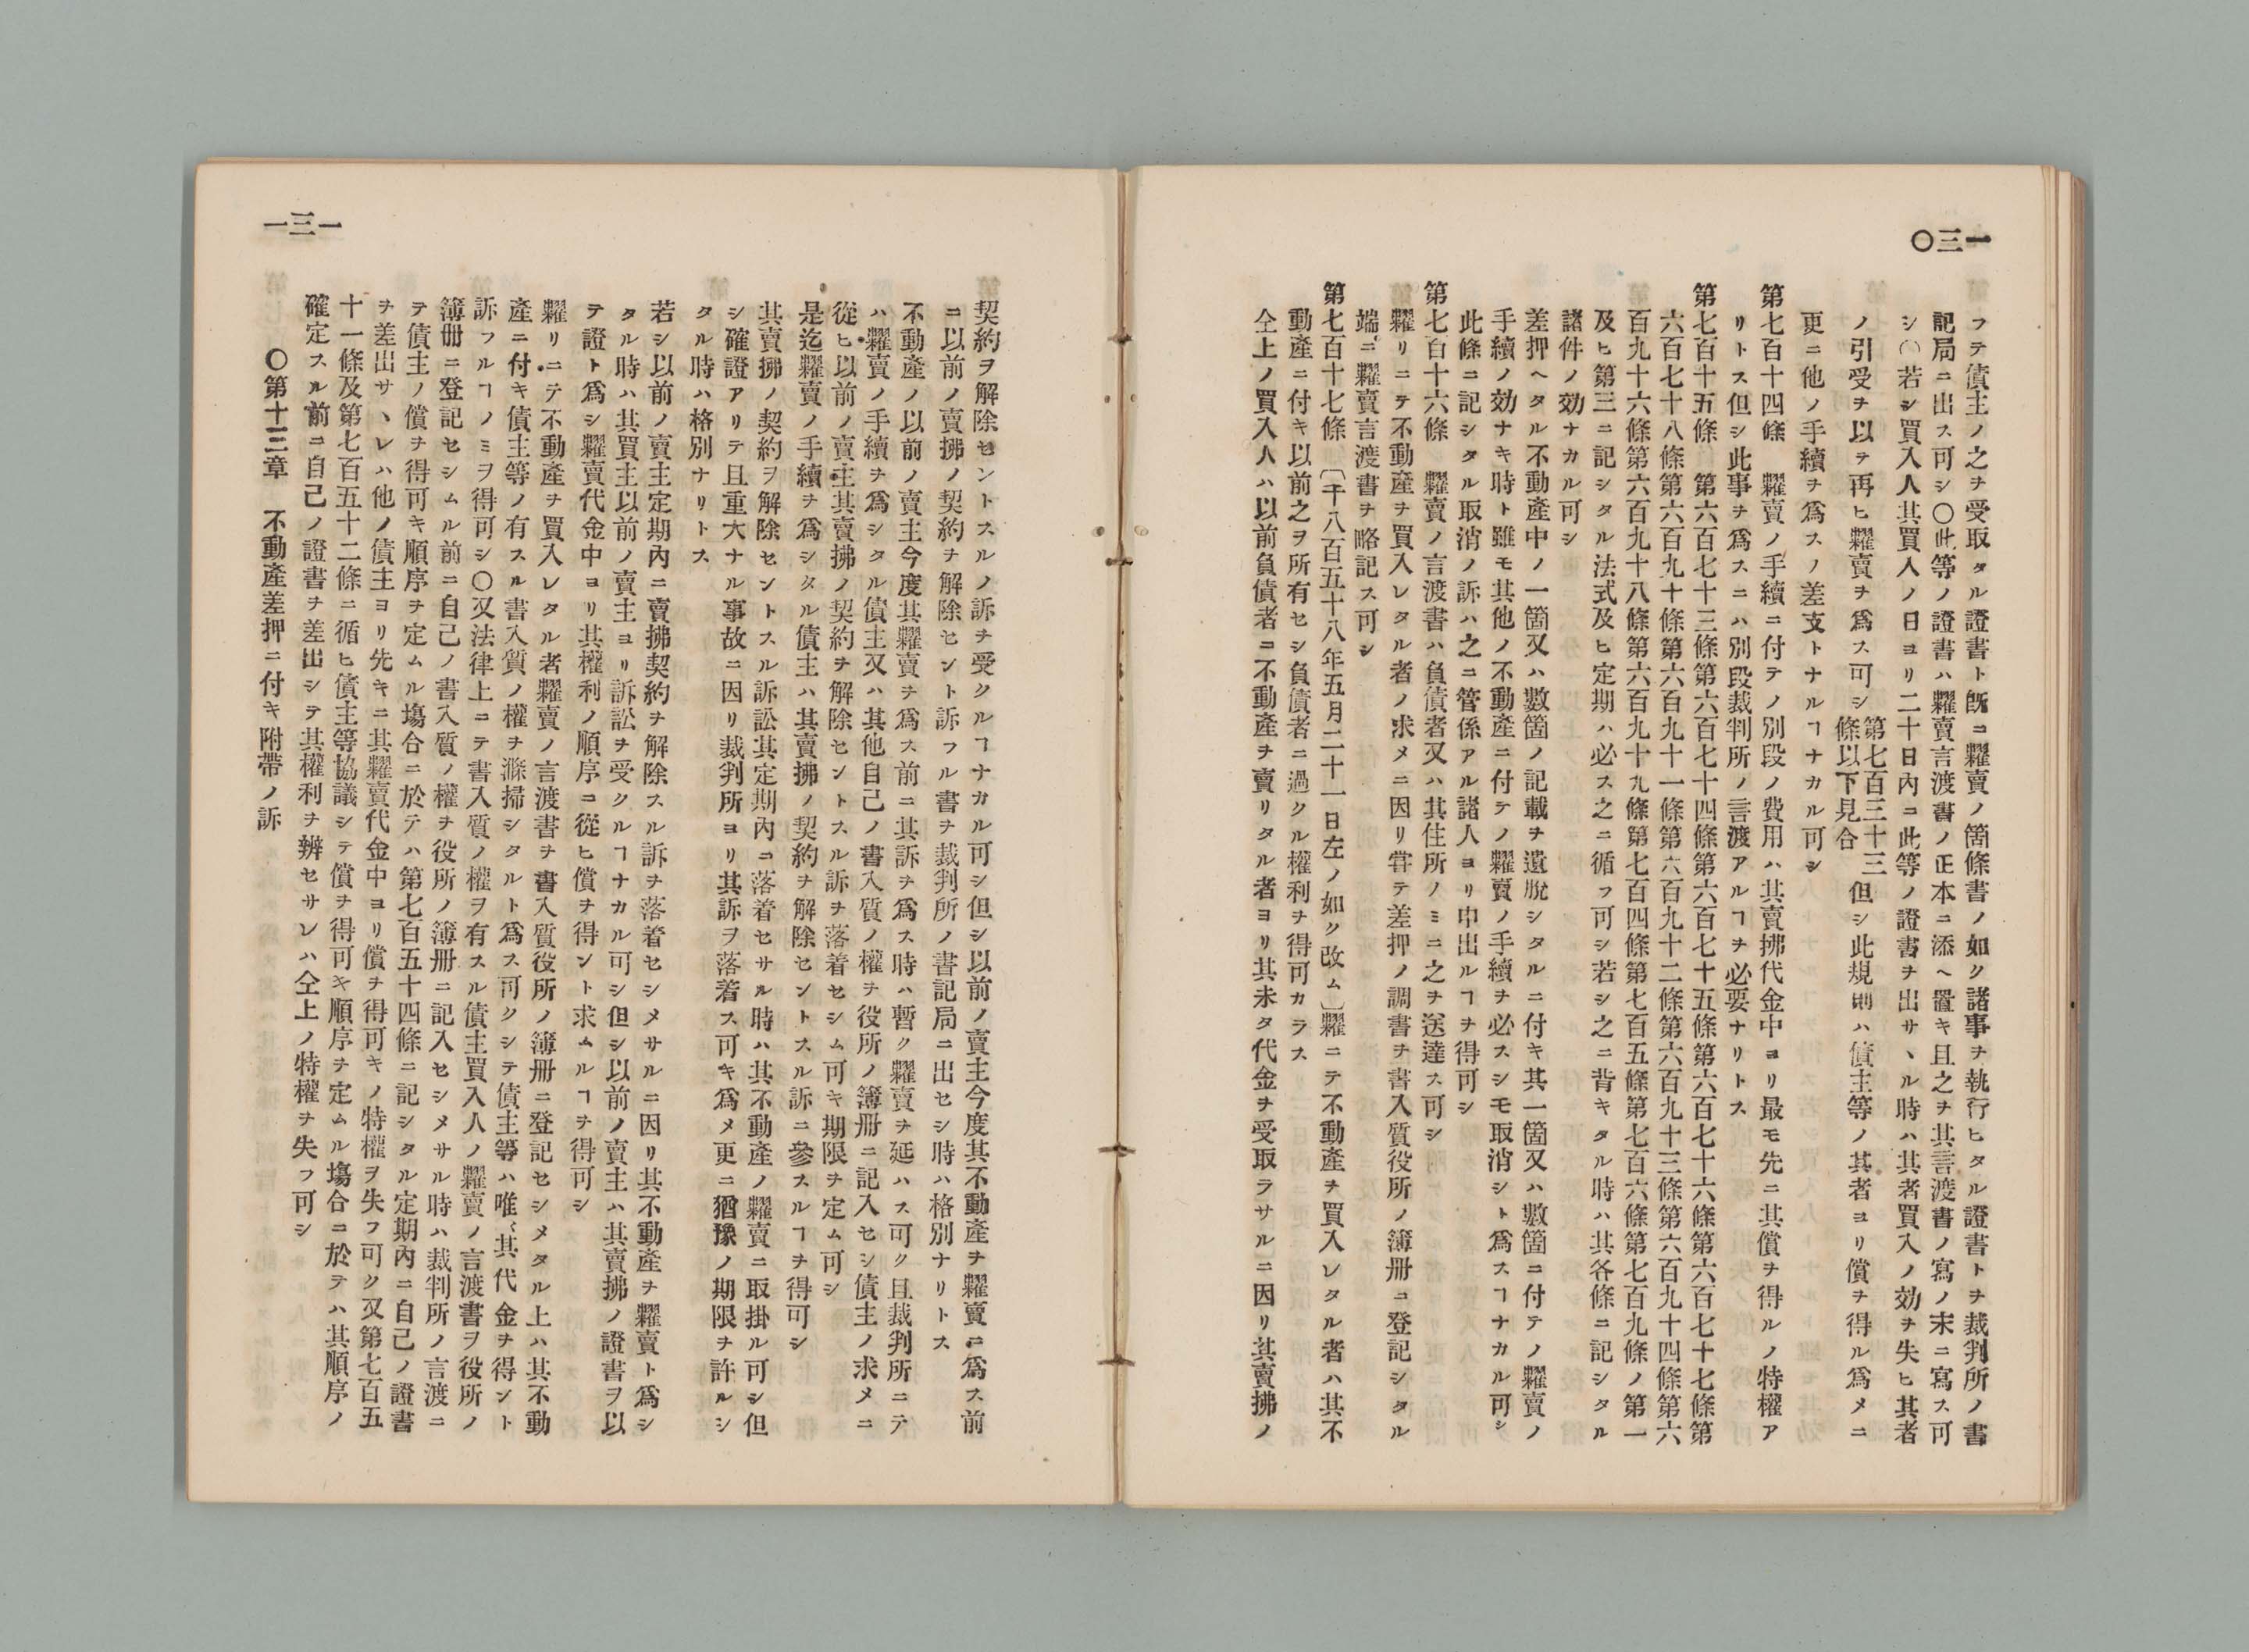 一三〇
フテ債主ノ之ヲ受取タル證書ト既ニ糶賣ノ箇條書ノ如ク諸事ヲ執行ヒタル證書トヲ裁判所ノ書
記局ニ出ス可シ〇此等ノ證書ハ糶賣言渡書ノ正本ニ添ヘ置キ且之ヲ其言渡書ノ寫ノ末ニ寫ス可
シ〇若シ買入人其買入ノ日ヨリ二十日內ニ此等ノ證書ヲ出サヽル時ハ其者買入ノ効ヲ失ヒ其者
ノ引受ヲ以テ再ヒ糶賣ヲ爲ス可シ第七百三十三條以下見合但シ此規則ハ債主等ノ其者ヨリ償ヲ得ル爲メニ
更ニ他ノ手續ヲ爲スノ差支トナルヿナカル可シ
第七百十四條　糶賣ノ手續ニ付テノ別段ノ費用ハ其賣拂代金中ヨリ最モ先ニ其償ヲ得ルノ特權ア
リトス但シ此事ヲ爲スニハ別段裁判所ノ言渡アルヿヲ必要ナリトス
第七百十五條　第六百七十三條第六百七十四條第六百七十五條第六百七十六條第六百七十七條第
六百七十八條第六百九十條第六百九十一條第六百九十二條第六百九十三條第六百九十四條第六
百九十六條第六百九十八條第六百九十九條第七百四條第七百五條第七百六條第七百九條ノ第一
及ヒ第三ニ記シタル法式及ヒ定期ハ必ス之ニ循フ可シ若シ之ニ背キタル時ハ其各條ニ記シタル
諸件ノ効ナカル可シ
差押ヘタル不動產中ノ一箇又ハ數箇ノ記載ヲ遺脫シタルニ付キ其一箇又ハ數箇ニ付テノ糶賣ノ
手續ノ効ナキ時ト雖モ其他ノ不動產ニ付テノ糶賣ノ手續ヲ必スシモ取消シト爲スヿナカル可シ
此條ニ記シタル取消ノ訴ハ之ニ管係アル諸人ヨリ申出ルヿヲ得可シ
第七百十六條　糶賣ノ言渡書ハ負債者又ハ其住所ノミニ之ヲ送達ス可シ
糶リニテ不動產ヲ買入レタル者ノ求メニ因リ甞テ差押ノ調書ヲ書入質役所ノ簿册ニ登記シタル
端ニ糶賣言渡書ヲ略記ス可シ
第七百十七條　〔千八百五十八年五月二十一日左ノ如ク改ム〕糶ニテ不動產ヲ買入レタル者ハ其不
動產ニ付キ以前之ヲ所有セシ負債者ニ過クル權利ヲ得可カラス
仝上ノ買入人ハ以前負債者ニ不動產ヲ賣リタル者ヨリ其未タ代金ヲ受取ラサルニ因リ其賣拂ノ
一三一
契約ヲ解除セントスルノ訴ヲ受クルヿナカル可シ但シ以前ノ賣主今度其不動產ヲ糶賣ニ爲ス前
ニ以前ノ賣拂ノ契約ヲ解除セント訴フル書ヲ裁判所ノ書記局ニ出セシ時ハ格別ナリトス
不動產ノ以前ノ賣主今度其糶賣ヲ爲ス前ニ其訴ヲ爲ス時ハ暫ク糶賣ヲ延ハス可ク且裁判所ニテ
ハ糶賣ノ手續ヲ爲シタル債主又ハ其他自己ノ書入質ノ權ヲ役所ノ簿册ニ記入セシ債主ノ求メニ
從ヒ以前ノ賣主其賣拂ノ契約ヲ解除セントスル訴ヲ落着セシム可キ期限ヲ定ム可シ
是迄糶賣ノ手續ヲ爲シタル債主ハ其賣拂ノ契約ヲ解除セントスル訴ニ參スルヿヲ得可シ
其賣拂ノ契約ヲ解除セントスル訴訟其定期內ニ落着セサル時ハ其不動產ノ糶賣ニ取掛ル可シ但
シ確證アリテ且重大ナル事故ニ因リ裁判所ヨリ其訴ヲ落着ス可キ爲メ更ニ猶豫ノ期限ヲ許ルシ
タル時ハ格別ナリトス
若シ以前ノ賣主定期內ニ賣拂契約ヲ解除スル訴ヲ落着セシメサルニ因リ其不動產ヲ糶賣ト爲シ
タル時ハ其買主以前ノ賣主ヨリ訴訟ヲ受クルヿナカル可シ但シ以前ノ賣主ハ其賣拂ノ證書ヲ以
テ證ト爲シ糶賣代金中ヨリ其權利ノ順序ニ從ヒ償ヲ得ント求ムルヿヲ得可シ
糶リニテ不動產ヲ買入レタル者糶賣ノ言渡書ヲ書入質役所ノ簿册ニ登記セシメタル上ハ其不動
產ニ付キ債主等ノ有スル書入質ノ權ヲ滌掃シタルト爲ス可クシテ債主等ハ唯其代金ヲ得ント
訴フルヿノミヲ得可シ〇又法律上ニテ書入質ノ權ヲ有スル債主買入人ノ糶賣ノ言渡書ヲ役所ノ
簿册ニ登記セシムル前ニ自己ノ書入質ノ權ヲ役所ノ簿册ニ記入セシメサル時ハ裁判所ノ言渡ニ
テ債主ノ償ヲ得可キ順序ヲ定ムル塲合ニ於テハ第七百五十四條ニ記シタル定期內ニ自己ノ證書
ヲ差出サヽレハ他ノ債主ヨリ先キニ其糶賣代金中ヨリ償ヲ得可キノ特權ヲ失フ可ク又第七百五
十一條及第七百五十二條ニ循ヒ債主等協議シテ償ヲ得可キ順序ヲ定ムル塲合ニ於テハ其順序ノ
確定スル前ニ自己ノ證書ヲ差出シテ其權利ヲ辨セサレハ仝上ノ特權ヲ失フ可シ
〇第十三章　不動產差押ニ付キ附帶ノ訴